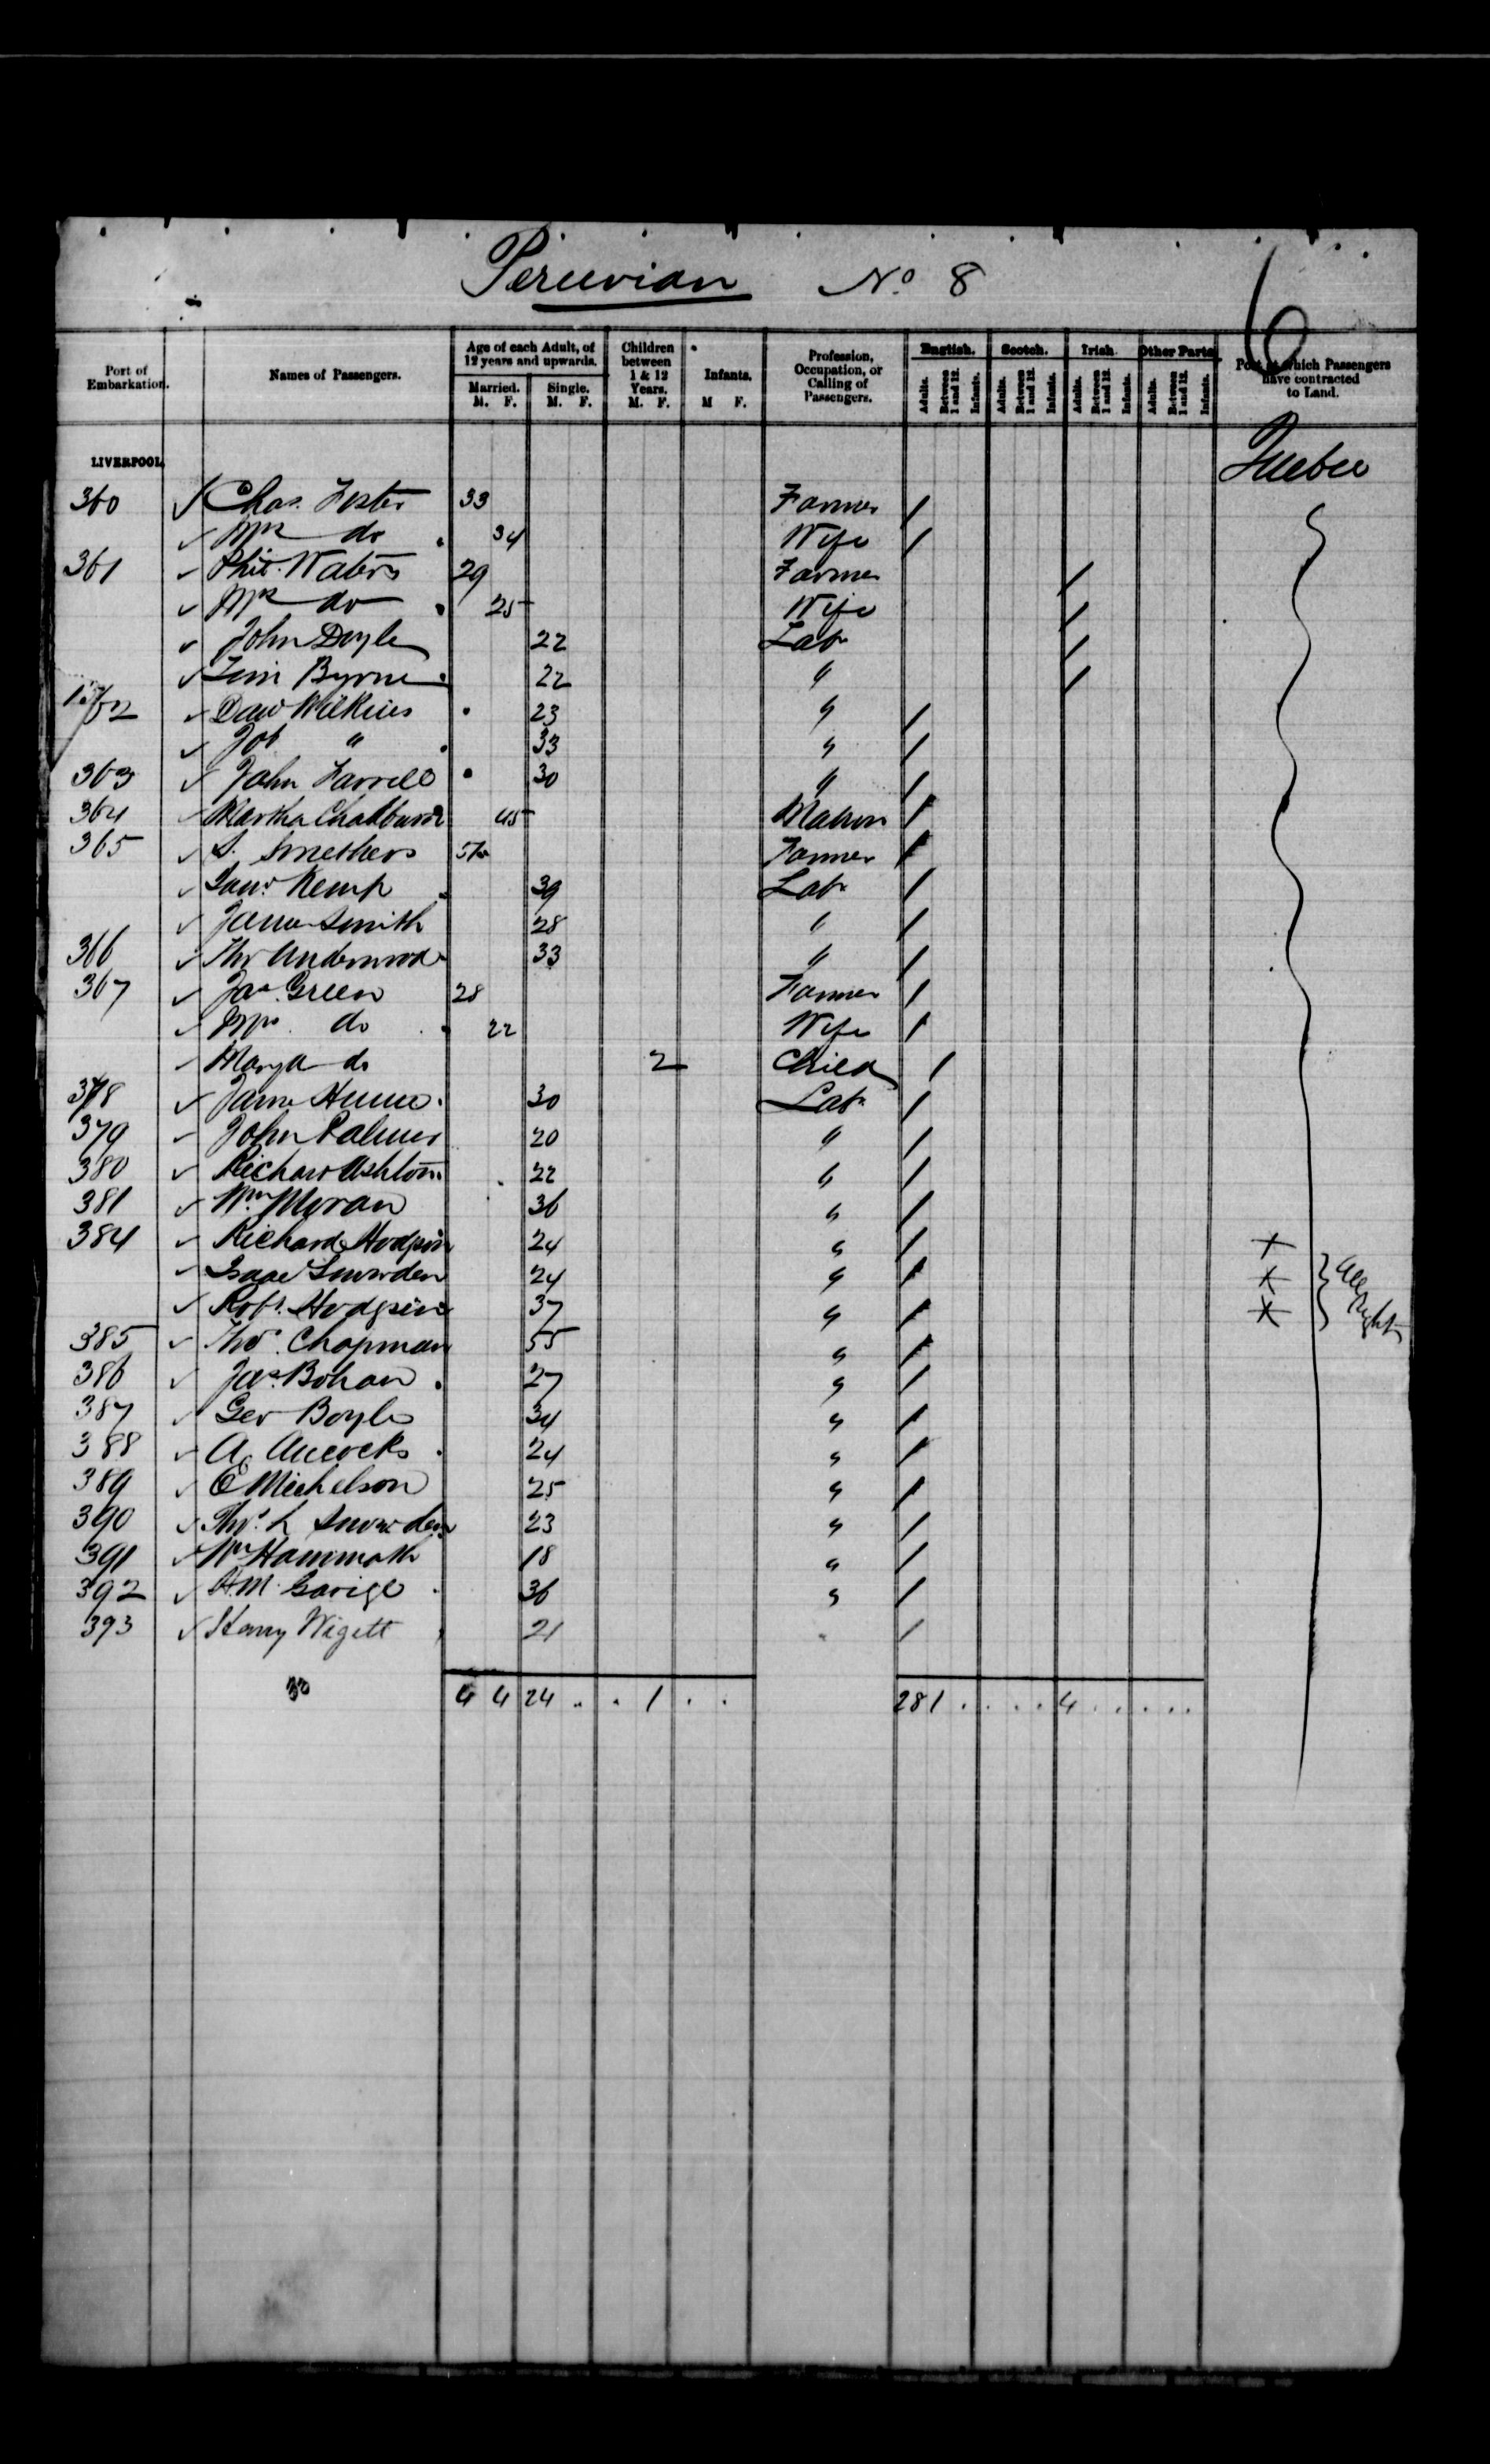 Peruvian No 8
6
Port of Embarkation. Names of Passengers. Age of each Adult, of 12 years and upwards. Married. M. F. Single. M. F. Children between 1 & 12 Years. M. F. Infants. M F. Profession, Occupation, or Calling of Passengers. English. Adults. Between 1 and 12. Infants. Scotch. Adults. Between 1 and 12. Infants. Irish. Adults. Between 1 and 12. Infants. Other Parts. Adults. Between 1 and 12. Infants. Port at which Passengers have contracted to Land.
LIVERPOOL Quebec
360 ✓ Chas. Foster 33 Farmer /
✓ Mrs do 34 Wife /
361 ✓ Phil. Waters 29 Farmer /
✓ Mrs do 25 Wife /
✓ John Doyle 22 Labr /
✓ Tim Byrne 22 " /
362 ✓ Davd Wilkins 23 " /
✓ Job " 33 " /
363 ✓ John Farrell 30 " /
364 ✓ Martha 45 Matron /
365 ✓ S. Smethers Farmer /
✓ Kemp 39 Labr /
✓ James Smith 28 " /
366 ✓ Thos Underwood 33 " /
367 ✓ Jas. Green 28 Farmer /
✓ Mrs. do 22 Wife /
✓ Mary A do 2 Child /
378 ✓ James Hume 30 Labr /
379 ✓ John Palmer 20 " /
380 ✓ Richard Ashton 22 " /
381 ✓ Wm Moran 36 " /
384 ✓ Richard Hodgson 24 " / X
✓ Isaac Snowden 24 " / X } all
✓ Robt. Hodgson 37 " / X right
385 ✓ Thos. Chapman 55 " /
386 ✓ Jas. Bohan 27 " /
387 ✓ Geo Boyle 34 " /
388 ✓ A. Aucocks 24 " /
389 ✓ E Michelson 25 " /
390 ✓ Thos. L Snowden 23 " /
391 ✓ Wm Hammoth 18 " /
392 ✓ H.M. Garige 36 " /
393 ✓ Harry Wigett 21 /
4 4 24 . . 1 . . 28 1 . . . . 4 . . . . .